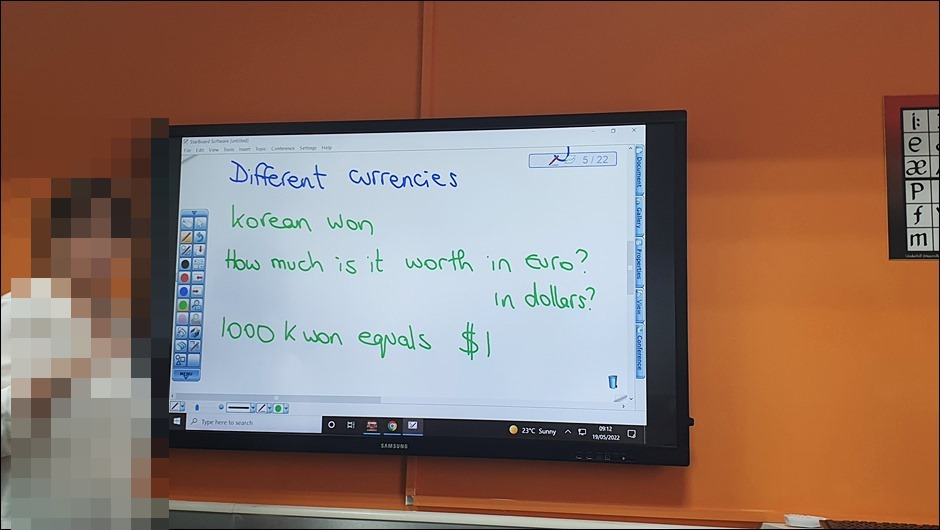 StarBoard Software [untitled]
File Edit View Tools Insert Topic Conference Settings Help
5 / 22
Different currencies
Korean won
How much is it worth in Euro?
in dollars?
1000 K won equals $1
Document
Gallery
Properties
View
Conference
MENU
Type here to search
23°C Sunny
09:12
19/05/2022
SAMSUNG
i:
e
æ
p
f
m